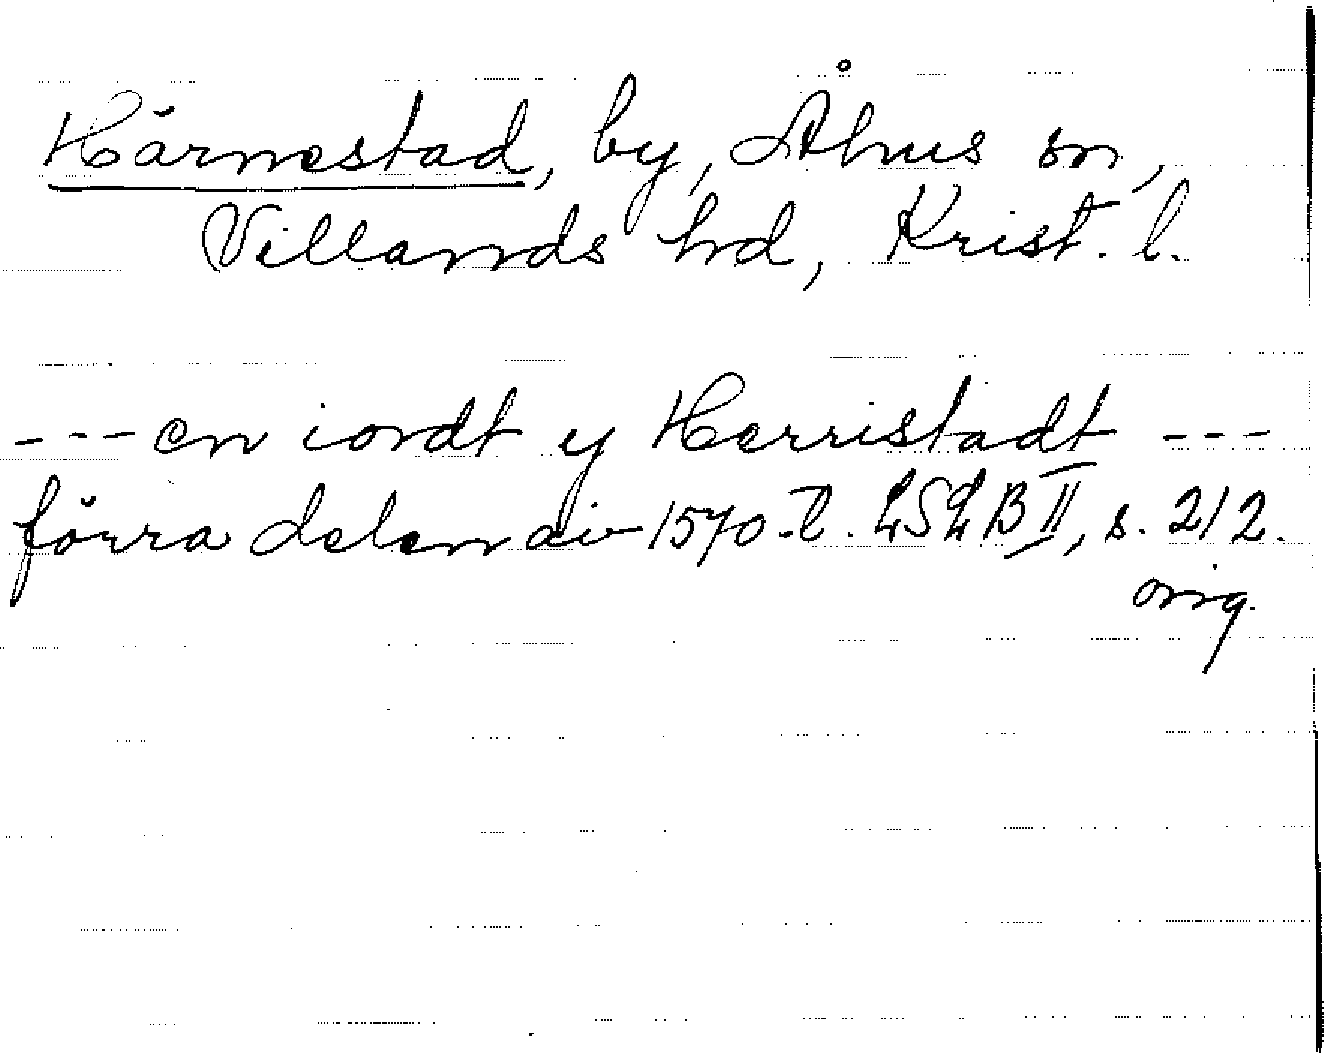 Härnestad, by, Åhus sn,
Villands hd, Krist. l.
--- en iordt y Herristadt ---
förra delen av 1570-t. LSLB II, s. 212.
orig.